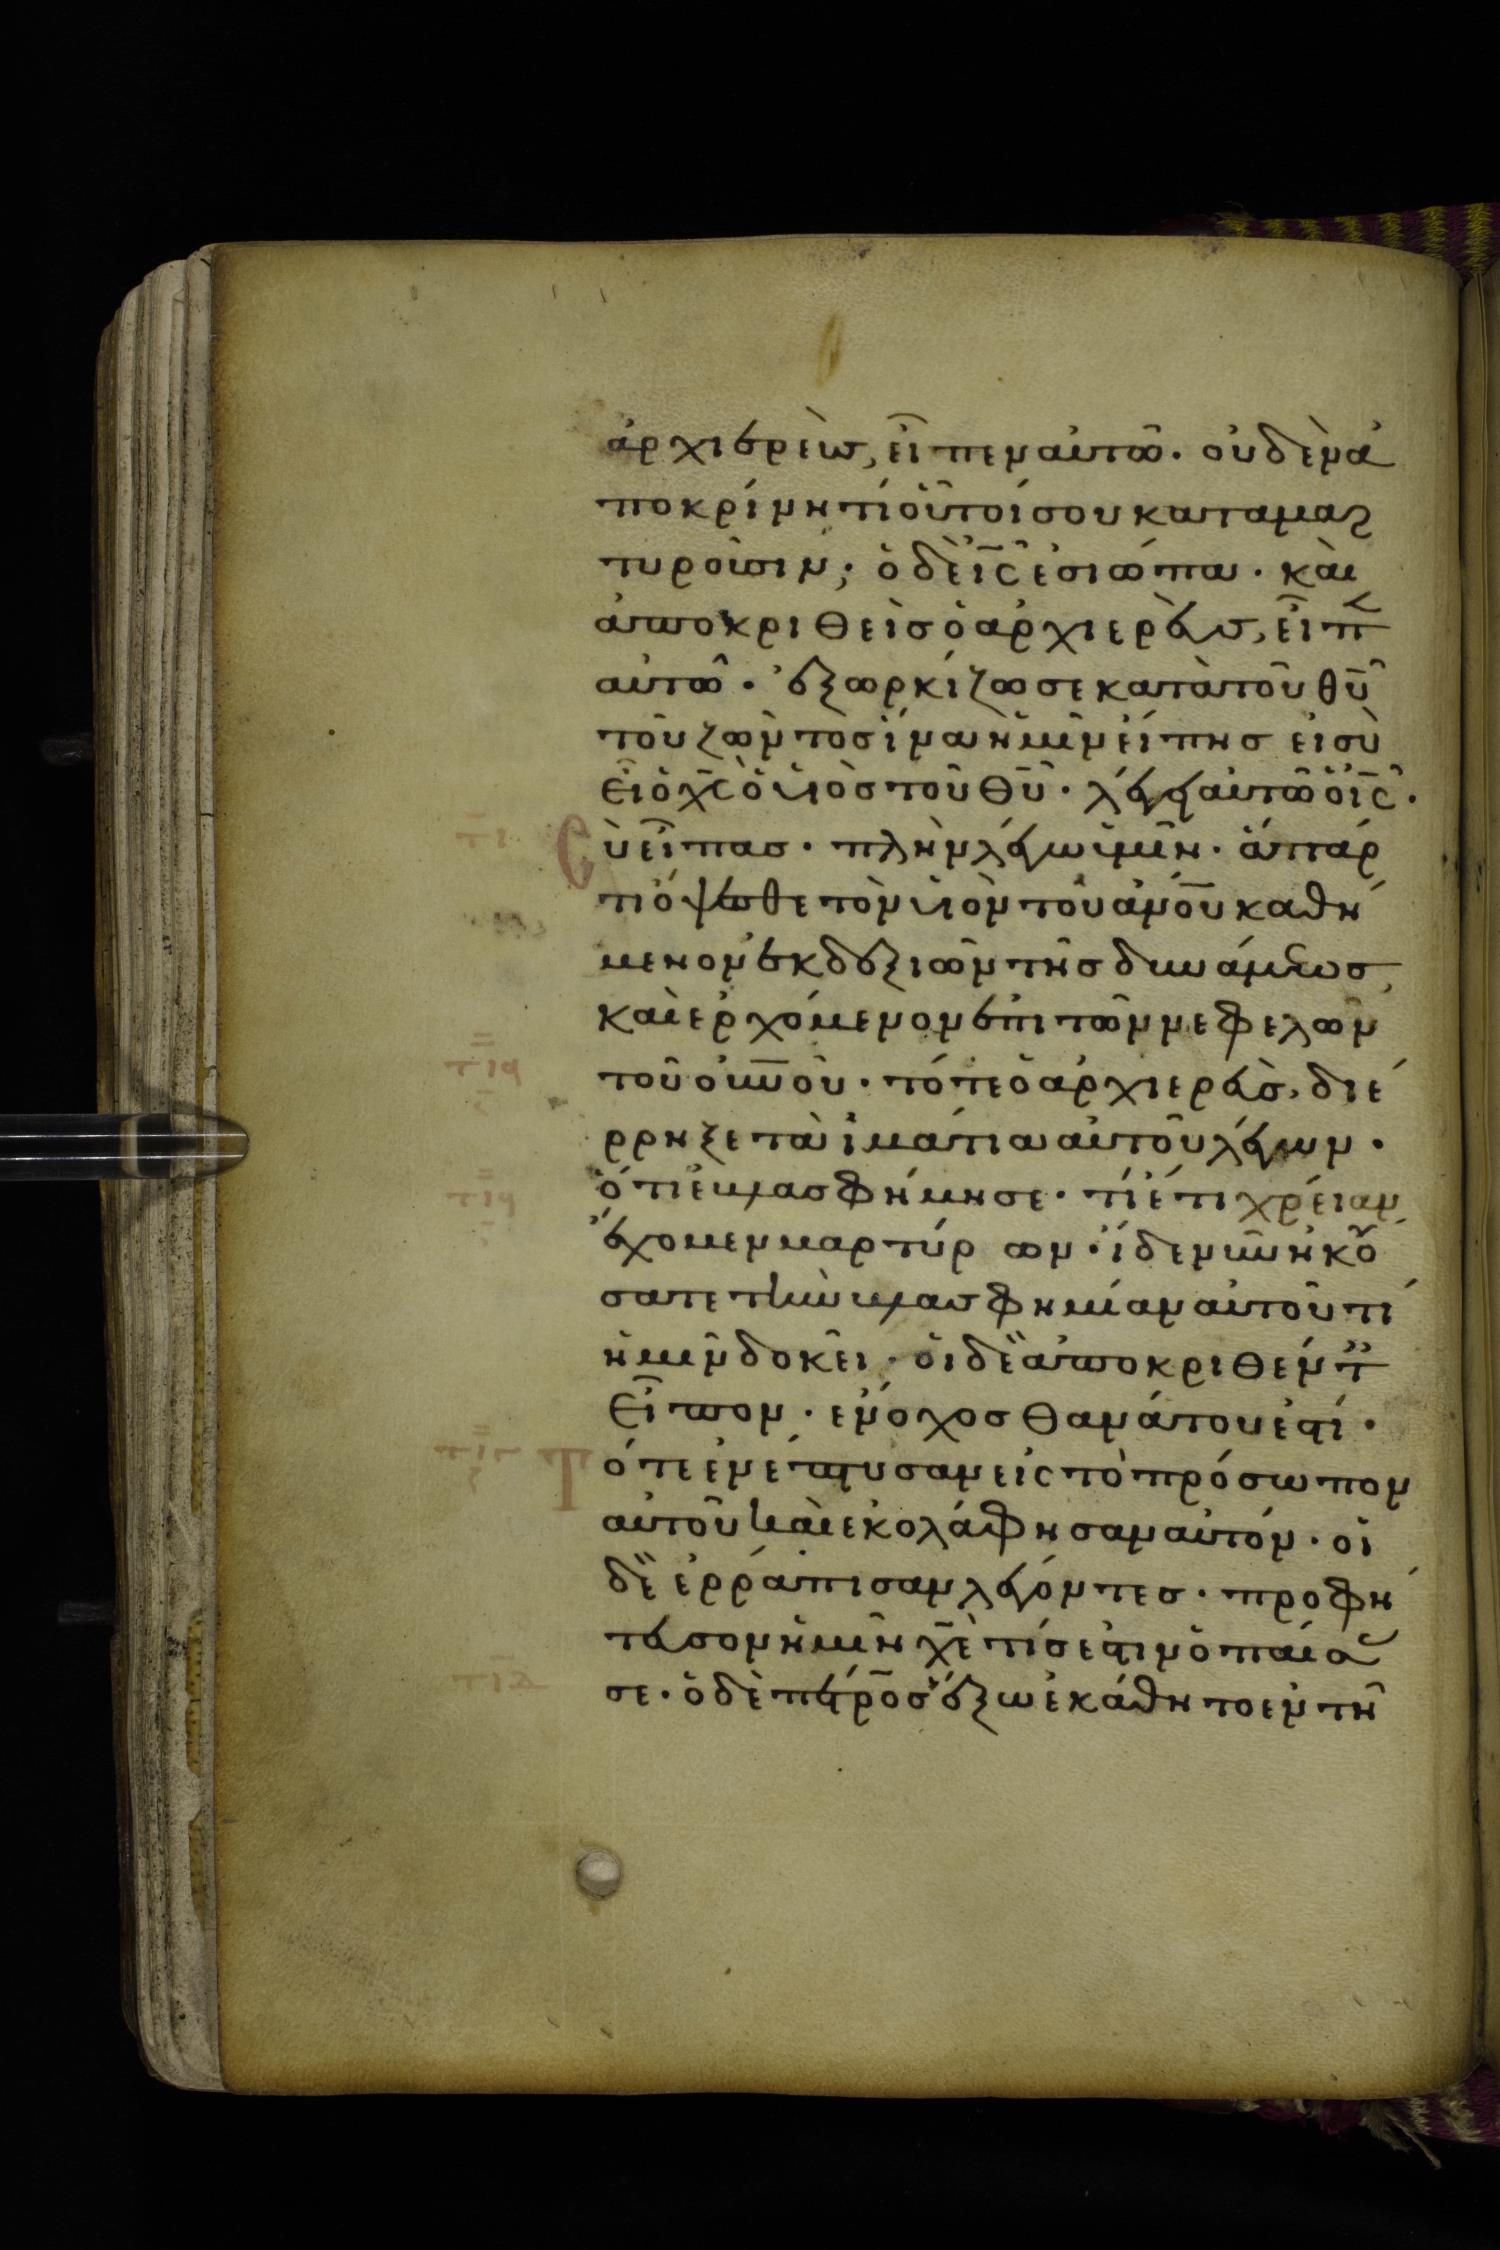 ἀρχιερεὺσ, εἶπεν αὐτῶ. οὐδὲν ἀ
ποκρίνη τί οὗτοί σου καταμαρ
τυροῦσιν; ὁ δὲ ις̅ ἐσιώπα. καὶ
ἀποκριθεὶσ ὁ ἀρχιερεὺσ, εἶπ
αὐτῶ. ἐξωρκίζω σε κατὰ τοῦ θ̅υ̅
τοῦ ζῶντοσ ἵνα ἡμῖν εἴπησ εἰ σὺ
εἶ ὁ χ̅ς̅ ὁ υἱὸσ τοῦ θ̅υ̅. λέγει αὐτῶ ὁ ι̅ς̅.
Cὺ εἶπασ. πλὴν λέγω ὑμῖν. ἀπάρ
τι ὄψεσθε τὸν υἱὸν τοῦ ἀν̅ο̅υ̅ καθή
μενον ἐκ δεξιῶν τῆσ δυνάμεωσ
καὶ ἐρχόμενον ἐπὶ τῶν νεφελῶν
τοῦ οὐ̅ν̅οῦ. τότε ὁ ἀρχιερεὺσ, διέ
ρρηξε τὰ ἱμάτια αὐτοῦ λέγων.
ὅτι ἐβλασφήμησε. τί ἔτι χρείαν
ἔχομεν μαρτύρων. ἴδε νῦν ἠκού
σατε τὴν βλασφημίαν αὐτοῦ τί
ἡμῖν δοκεῖ. οἱ δὲ ἀποκριθέντ
εἶπον. ἔνοχοσ θανάτου ἐστί.
Τότε ἐνέπτυσαν εἰς τὸ πρόσωπον
αὐτοῦ καὶ ἐκολάφησαν αὐτόν. οἱ
δὲ ἐρράπισαν λέγόντεσ. προφή
τευσον ἡμῖν χ̅ε̅ τίσ ἐστιν ὁ παίσασ
σε. ὁ δὲ πέτρ̅οσ ἔξω ἐκάθητο ἐν τῆ
τι
τια
τιγ
τιδ